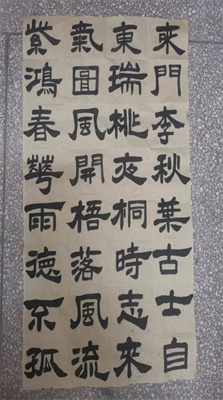 紫氣東來
鴻圖瑞門
春風桃李
華開夜秋
雨梧桐葉
德落時古
不風志士
孤流來自